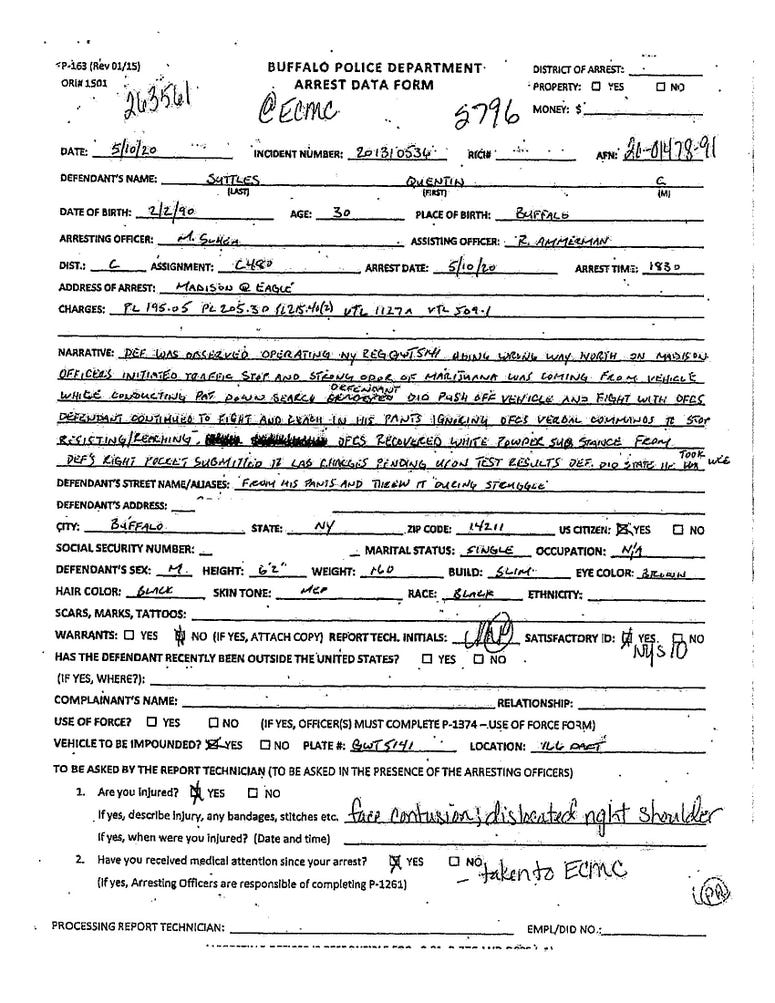 P-163 (Rev 01/15)
ORI# 1501
263561
BUFFALO POLICE DEPARTMENT
ARREST DATA FORM
@ECMC
5796
DISTRICT OF ARREST:
PROPERTY: ☐ YES ☐ NO
MONEY: $
DATE: 5/10/20 INCIDENT NUMBER: 201310534 RICI# AFN: 20-01478-91
DEFENDANT'S NAME: SUTTLES QUENTIN C
(LAST) (FIRST) (M)
DATE OF BIRTH: 2/2/90 AGE: 30 PLACE OF BIRTH: BUFFALO
ARRESTING OFFICER: M. ASSISTING OFFICER: R. AMMERMAN
DIST.: C ASSIGNMENT: C480 ARREST DATE: 5/10/20 ARREST TIME: 1830
ADDRESS OF ARREST: MADISON @ EAGLE
CHARGES: PL 195.05 PL 205.30 PL 215.40(2) VTL 1127A VTL 509-1
NARRATIVE: DEF WAS OBSERVED OPERATING NY REG GWT5141 GOING WRONG WAY NORTH ON MADISON
OFFICERS INITIATED TRAFFIC STOP AND STRONG ODOR OF MARIJUANA WAS COMING FROM VEHICLE
WHILE CONDUCTING PAT DOWN SEARCH DEFENDANT DID PUSH OFF VEHICLE AND FIGHT WITH OFCS
DEFENDANT CONTINUED TO FIGHT AND REACH IN HIS PANTS IGNORING OFCS VERBAL COMMANDS TO STOP
RESISTING/REACHING OFCS RECOVERED WHITE POWDER SUBSTANCE FROM
DEF'S RIGHT POCKET SUBMITTED TO LAB CHARGES PENDING UPON TEST RESULTS DEF. DID STATE HE TOOK
DEFENDANT'S STREET NAME/ALIASES: FROM HIS PANTS AND THREW IT DURING STRUGGLE
DEFENDANT'S ADDRESS:
CITY: BUFFALO STATE: NY ZIP CODE: 14211 US CITIZEN: ☒ YES ☐ NO
SOCIAL SECURITY NUMBER: MARITAL STATUS: SINGLE OCCUPATION: N/A
DEFENDANT'S SEX: M. HEIGHT: 6'2" WEIGHT: 160 BUILD: SLIM EYE COLOR: BROWN
HAIR COLOR: BLACK SKIN TONE: MED RACE: BLACK ETHNICITY:
SCARS, MARKS, TATTOOS:
WARRANTS: ☐ YES ☒ NO (IF YES, ATTACH COPY) REPORT TECH. INITIALS: SATISFACTORY ID: ☒ YES ☐ NO
NYS ID
HAS THE DEFENDANT RECENTLY BEEN OUTSIDE THE UNITED STATES? ☐ YES ☐ NO
(IF YES, WHERE?):
COMPLAINANT'S NAME: RELATIONSHIP:
USE OF FORCE? ☐ YES ☐ NO (IF YES, OFFICER(S) MUST COMPLETE P-1374 – USE OF FORCE FORM)
VEHICLE TO BE IMPOUNDED? ☒ YES ☐ NO PLATE #: GWT5141 LOCATION: 166 DART
TO BE ASKED BY THE REPORT TECHNICIAN (TO BE ASKED IN THE PRESENCE OF THE ARRESTING OFFICERS)
1. Are you injured? ☒ YES ☐ NO
If yes, describe injury, any bandages, stitches etc. face contusion; dislocated right shoulder
If yes, when were you injured? (Date and time)
2. Have you received medical attention since your arrest? ☒ YES ☐ NO - taken to ECMC
(If yes, Arresting Officers are responsible of completing P-1261)
PROCESSING REPORT TECHNICIAN: EMPL/DID NO.: